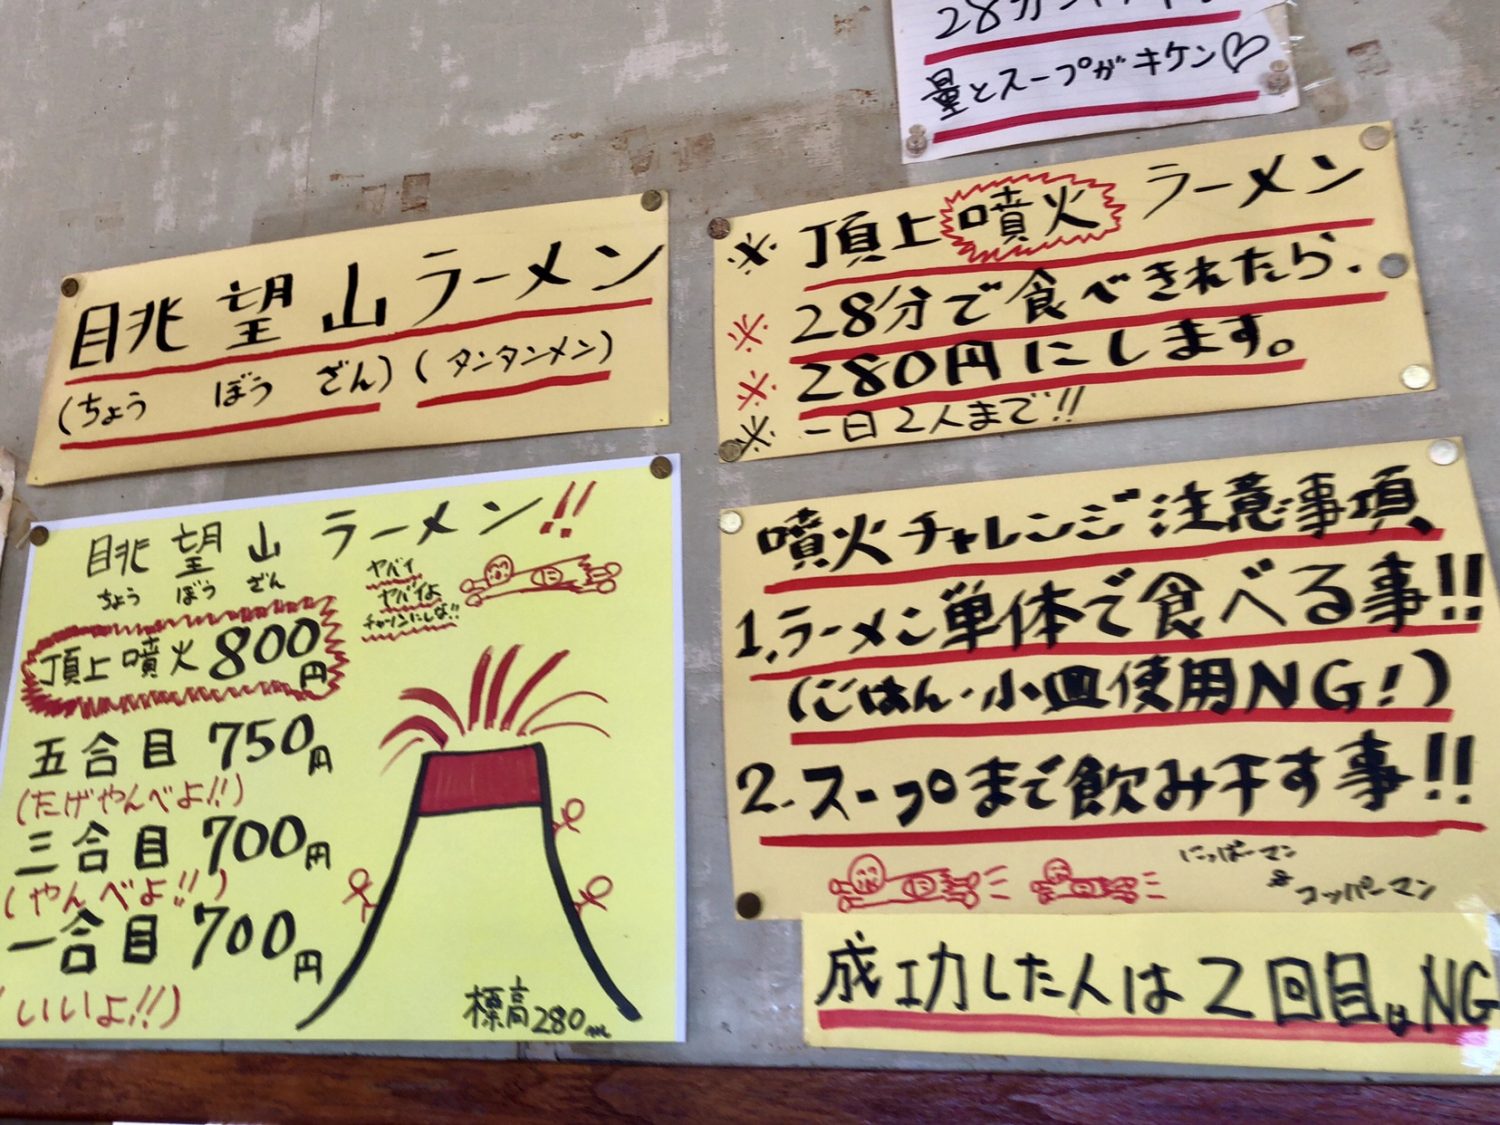 量とスープがキケン♡
眺望山ラーメン
(ちょう ぼう ざん) (タンタンメン)
※ 頂上噴火ラーメン
※ 28分で食べきれたら.
※ 280円にします。
※ 一日2人まで!!
眺望山ラーメン!!
ちょう ぼう ざん
ヤバイ
ヤバイよ
頂上噴火 800円
五合目 750円
(たげやんべよ!!)
三合目 700円
(やんべよ!!)
一合目 700円
(いいよ!!)
標高280m
噴火チャレンジ注意事項
1.ラーメン単体で食べる事!!
(ごはん・小皿使用NG!)
2.スープまで飲み干す事!!
にっぱーマン
&
コッパーマン
成功した人は2回目はNG